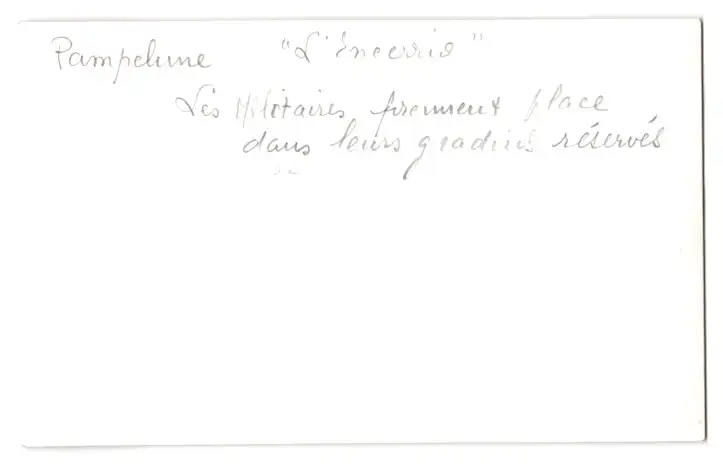 Pampelune "L'Encerrio"
Les Militaires prennent place
dans leurs gradins réservés